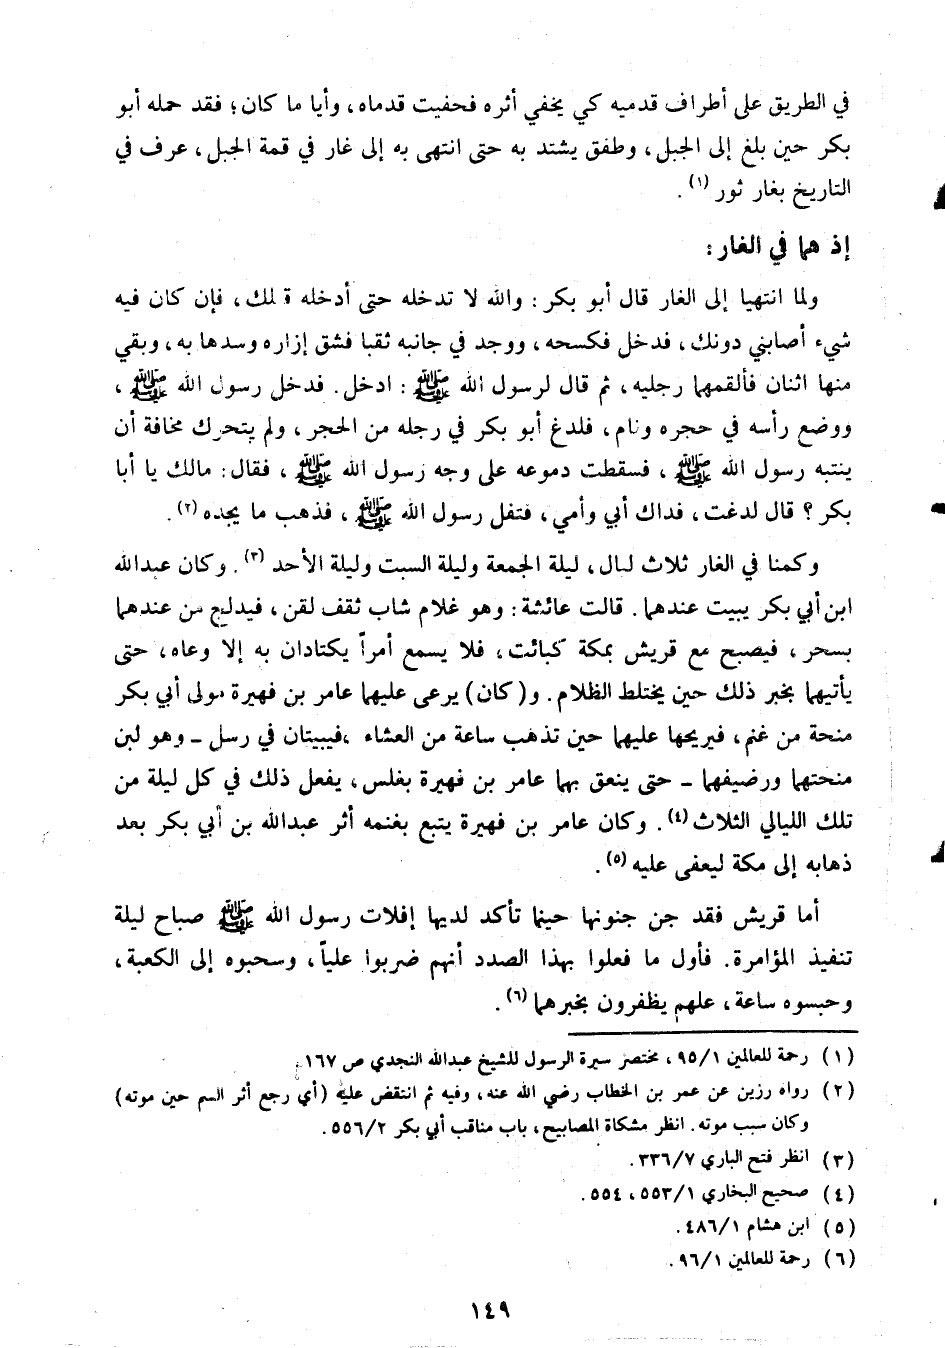 في الطريق على أطراف قدميه كي يخفي أثره فحفيت قدماه، وأيا ما كان؛ فقد حمله أبو
بكر حين بلغ إلى الجبل، وطفق يشتد به حتى انتهى به إلى غار في قمة الجبل، عرف في
التاريخ بغار ثور (١).
إذ هما في الغار:
ولما انتهيا إلى الغار قال أبو بكر: والله لا تدخله حتى أدخله قبلك، فإن كان فيه
شيء أصابني دونك، فدخل فكسحه، ووجد في جانبه ثقبا فشق إزاره وسدها به، وبقي
منها اثنان فألقمهما رجليه، ثم قال لرسول الله ﷺ: ادخل. فدخل رسول الله ﷺ،
ووضع رأسه في حجره ونام، فلدغ أبو بكر في رجله من الحجر، ولم يتحرك مخافة أن
ينتبه رسول الله ﷺ، فسقطت دموعه على وجه رسول الله ﷺ، فقال: مالك يا أبا
بكر؟ قال لدغت، فداك أبي وأمي، فتفل رسول الله ﷺ، فذهب ما يجده (٢).
وكمنا في الغار ثلاث ليال، ليلة الجمعة وليلة السبت وليلة الأحد (٣). وكان عبدالله
ابن أبي بكر يبيت عندهما. قالت عائشة: وهو غلام شاب ثقف لقن، فيدلج من عندهما
بسحر، فيصبح مع قريش بمكة كبائت، فلا يسمع أمراً يكتادان به إلا وعاه، حتى
يأتيهما بخبر ذلك حين يختلط الظلام. و(كان) يرعى عليهما عامر بن فهيرة مولى أبي بكر
منحة من غنم، فيريحها عليهما حين تذهب ساعة من العشاء، فيبيتان في رسل - وهو لبن
منحتهما ورضيفهما - حتى ينعق بهما عامر بن فهيرة بغلس، يفعل ذلك في كل ليلة من
تلك الليالي الثلاث (٤). وكان عامر بن فهيرة يتبع بغنمه أثر عبدالله بن أبي بكر بعد
ذهابه إلى مكة ليعفى عليه (٥).
أما قريش فقد جن جنونها حينما تأكد لديها إفلات رسول الله ﷺ صباح ليلة
تنفيذ المؤامرة. فأول ما فعلوا بهذا الصدد أنهم ضربوا علياً، وسحبوه إلى الكعبة،
وحبسوه ساعة، علهم يظفرون بخبرهما (٦).
(١) رحمة للعالمين ٩٥/١، مختصر سيرة الرسول للشيخ عبدالله النجدي ص ١٦٧.
(٢) رواه رزين عن عمر بن الخطاب رضي الله عنه، وفيه ثم انتقض عليه (أي رجع أثر السم حين موته)
وكان سبب موته. انظر مشكاة المصابيح، باب مناقب أبي بكر ٥٥٦/٢.
(٣) انظر فتح الباري ٣٣٦/٧.
(٤) صحيح البخاري ٥٥٣/١، ٥٥٤.
(٥) ابن هشام ٤٨٦/١.
(٦) رحمة للعالمين ٩٦/١.
١٤٩